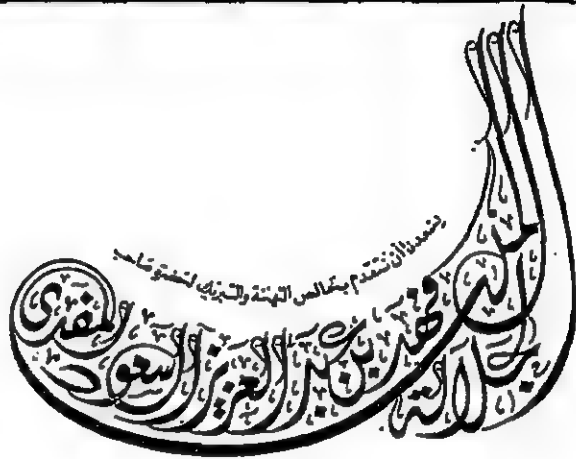 يسعدنا أن نتقدم بخالص التهنئة والتبريك لحضرة صاحب
الجلالة الملك فهد بن عبد العزيز آل سعود المفدى